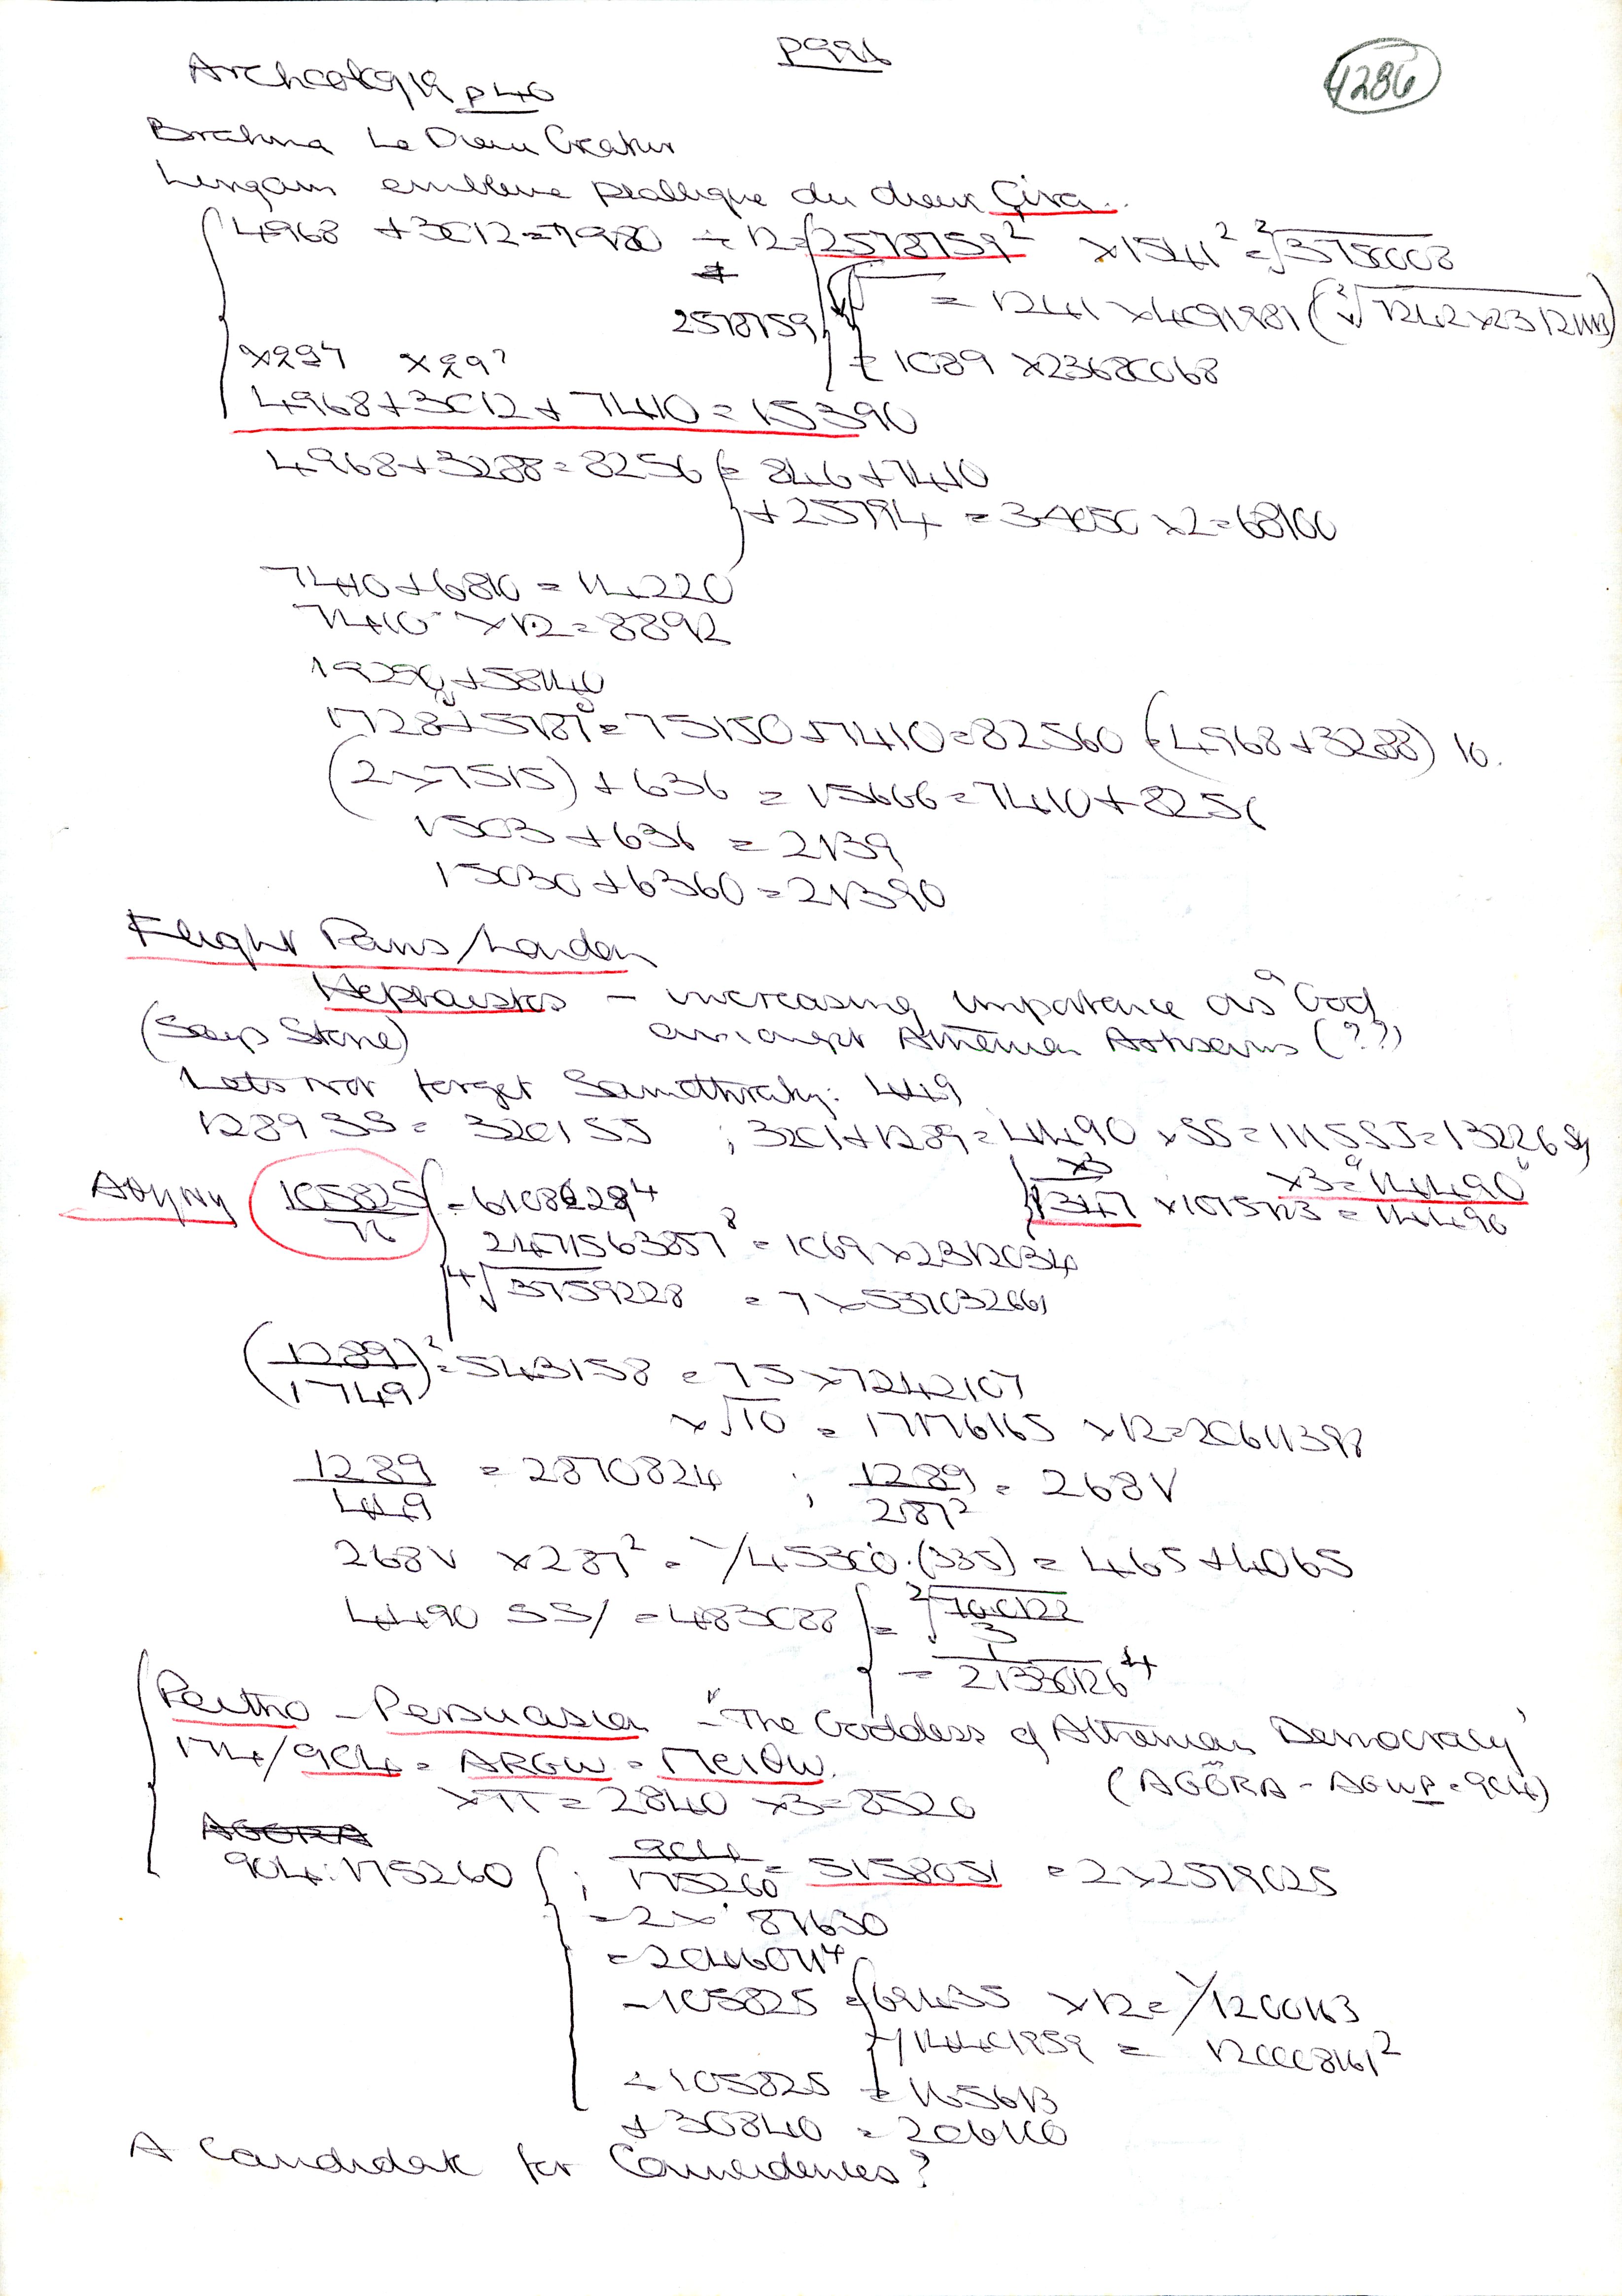 P991
4286
Archeologia p40
Brahma Le Dieu Creator
Lingam emblème phallique du dieux Çiva..
4968 + 3012 = 7980 ÷ 12 = 2578759² × 1541² = ³√3750008
2578759 = 1241 × 4091981 (³√1242 × 2312
×297 ×297 = 1089 × 23680068
4968 + 3012 + 7410 = 15390
4968 + 3288 = 8256 = 846 + 7410
+ 25794 = 34050 × 2 = 68100
7410 + 6810 = 14220
7410 × 12 = 8892
19290 + 58140
1728 + 5787 = 75150 + 7410 = 82560 (4968 + 3288) 10.
(2 × 7515) + 636 = 15666 = 7410 + 8256
1503 + 636 = 2139
15030 + 6360 = 21390
Flight Paris/London
Hephaistos - increasing importance as a God
(Soap Stone) amongst Athenian Artisans (??)
Lets not forget Samothraky: 449
1289 SS = 3201 SS ; 3201 + 1289 = 4490 × SS = 111555 = 13226
×3 ×3 = 14490
1347 × 1075723 = 14490
105825 = 61082284
2471563857⁸ = 1069 × 2312034
⁴√3759228 = 7 × 537032661
(1289/1749)² = 543158 = 75 × 7242107
× √10 = 17176165 × 12 = 20611398
1289/449 = 2870824 ; 1289/287² = 268V
268V × 287² = 1/45300.(335) = 465 + 4065
4490 SS/ = 483088 = ³√
= 1/21336126⁴
Peitho - Persuasion - "The Goddess of Athenian Democracy"
174/904 = ARGW = ΠΕΙΘW.
(AGŌRA - AGWP = 904)
×π = 2840 × 3 = 8520
904:175260 ; 904/175260 = 5158051 = 2 × 2579025
= 2 × 87630
= 20460114
- 105825 = 69435 × 12 = 1/1200163
1441959 = 12008161²
÷ 105825 = 165613
+ 30840 = 206100
A Candidate for Coincidences?